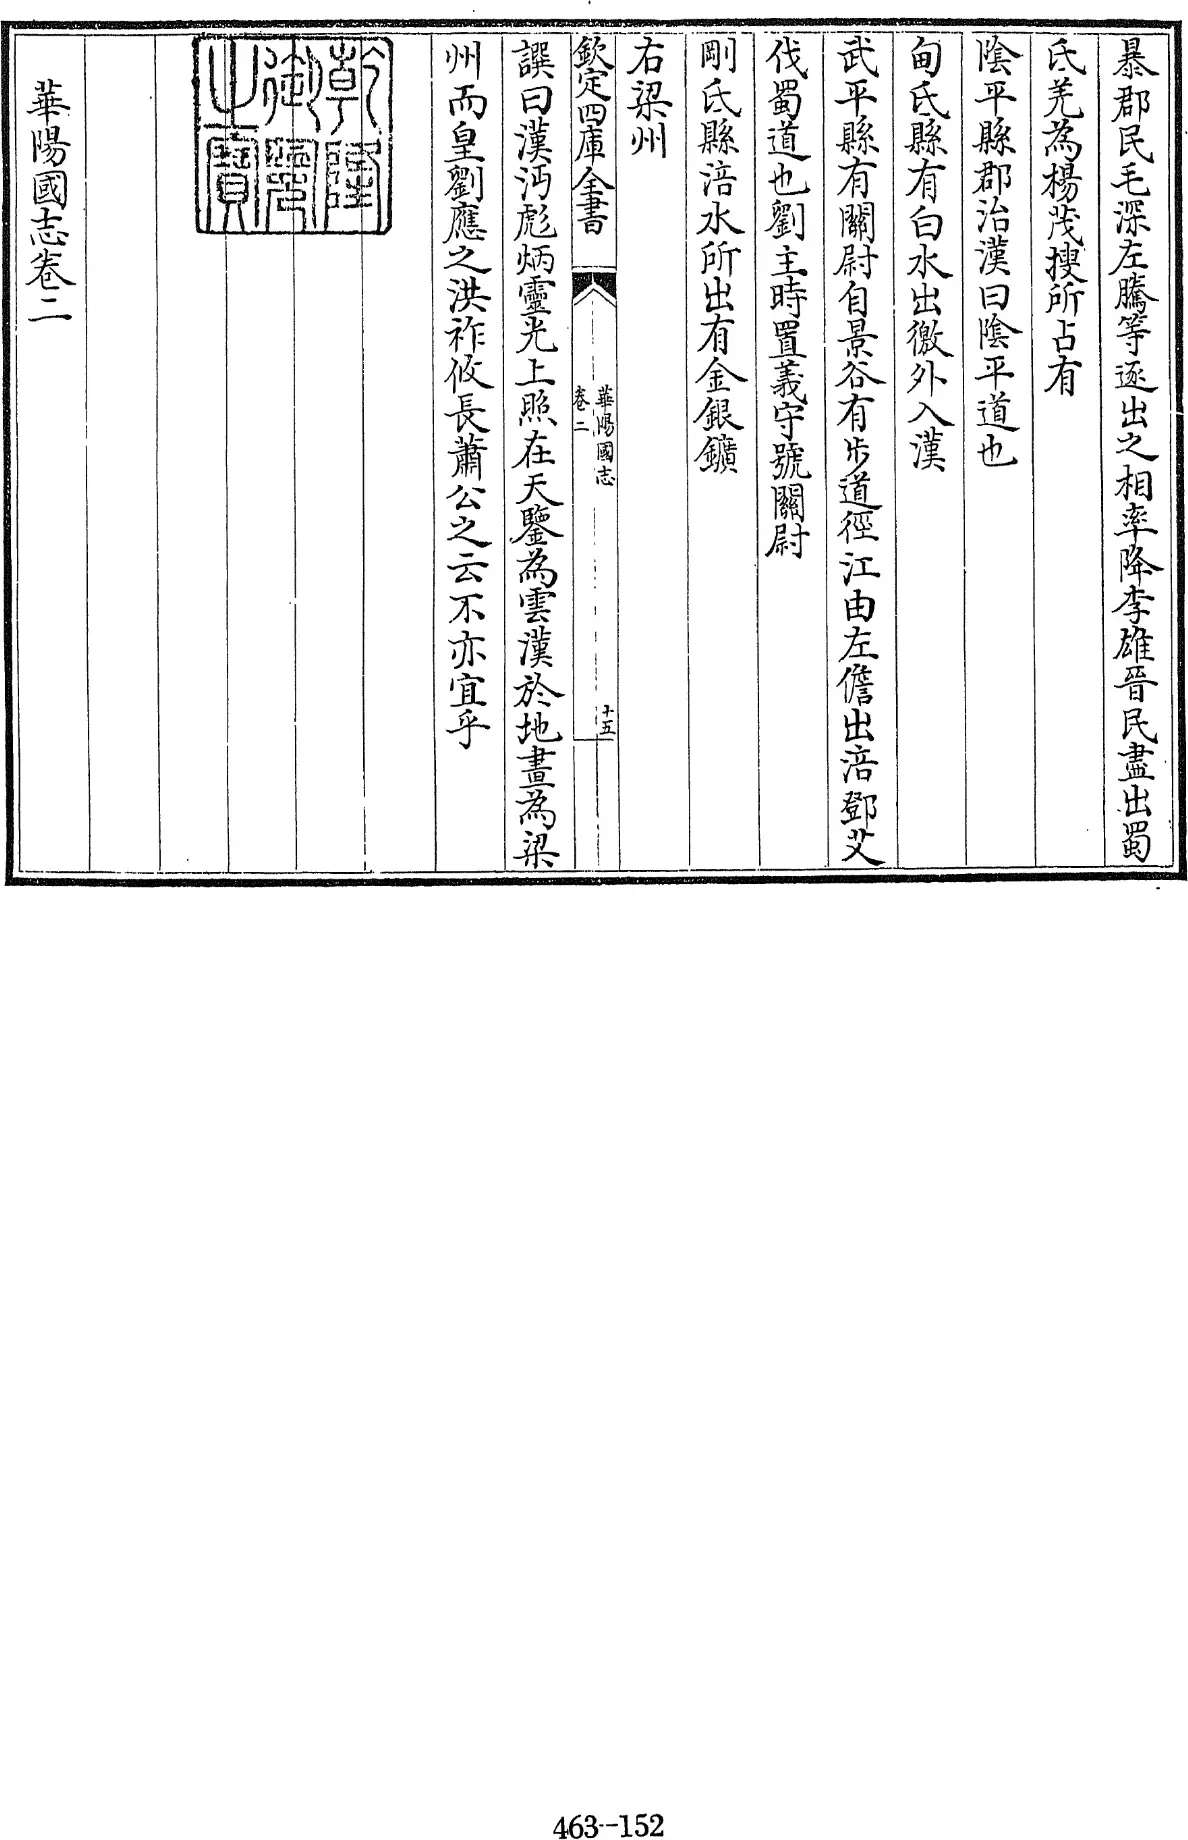 暴郡民毛深左騰等逐出之相率降李雄晉民盡出蜀
氐羌為楊茂搜所占有
陰平縣郡治漢曰陰平道也
甸氐縣有白水出徼外入漢
武平縣有關尉自景谷有步道徑江由左儋出涪鄧艾
伐蜀道也劉主時置義守號關尉
剛氐縣涪水所出有金銀鑛
右梁州
欽定四庫全書
華陽國志
卷二
十五
譔曰漢沔彪炳靈光上照在天鑒為雲漢於地畫為梁
州而皇劉應之洪祚攸長蕭公之云不亦宜乎
乾隆
御覽
之寶
華陽國志卷二
463-152